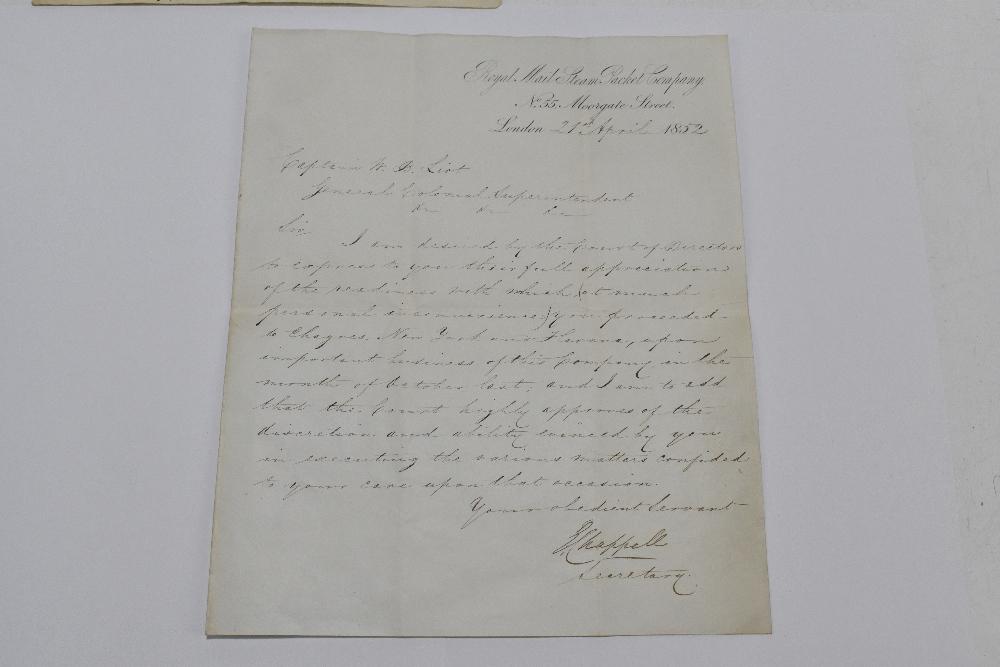 Royal Mail Steam Packet Company,
No. 55 Moorgate Street.
London 21st April 1852
Captain W. B. Liot
General Colonial Superintendent
&c &c &c
Sir,
I am desired by the Court of Directors
to express to you their full appreciation
of the readiness with which (at much
personal inconvenience) you proceeded
to Chagres, New York and Havana, upon
important business of this Company in the
month of October last; and I am to add
that the Court highly approves of the
discretion and ability evinced by you
in executing the various matters confided
to your care upon that occasion.
Your obedient Servant
E Chappell
Secretary.